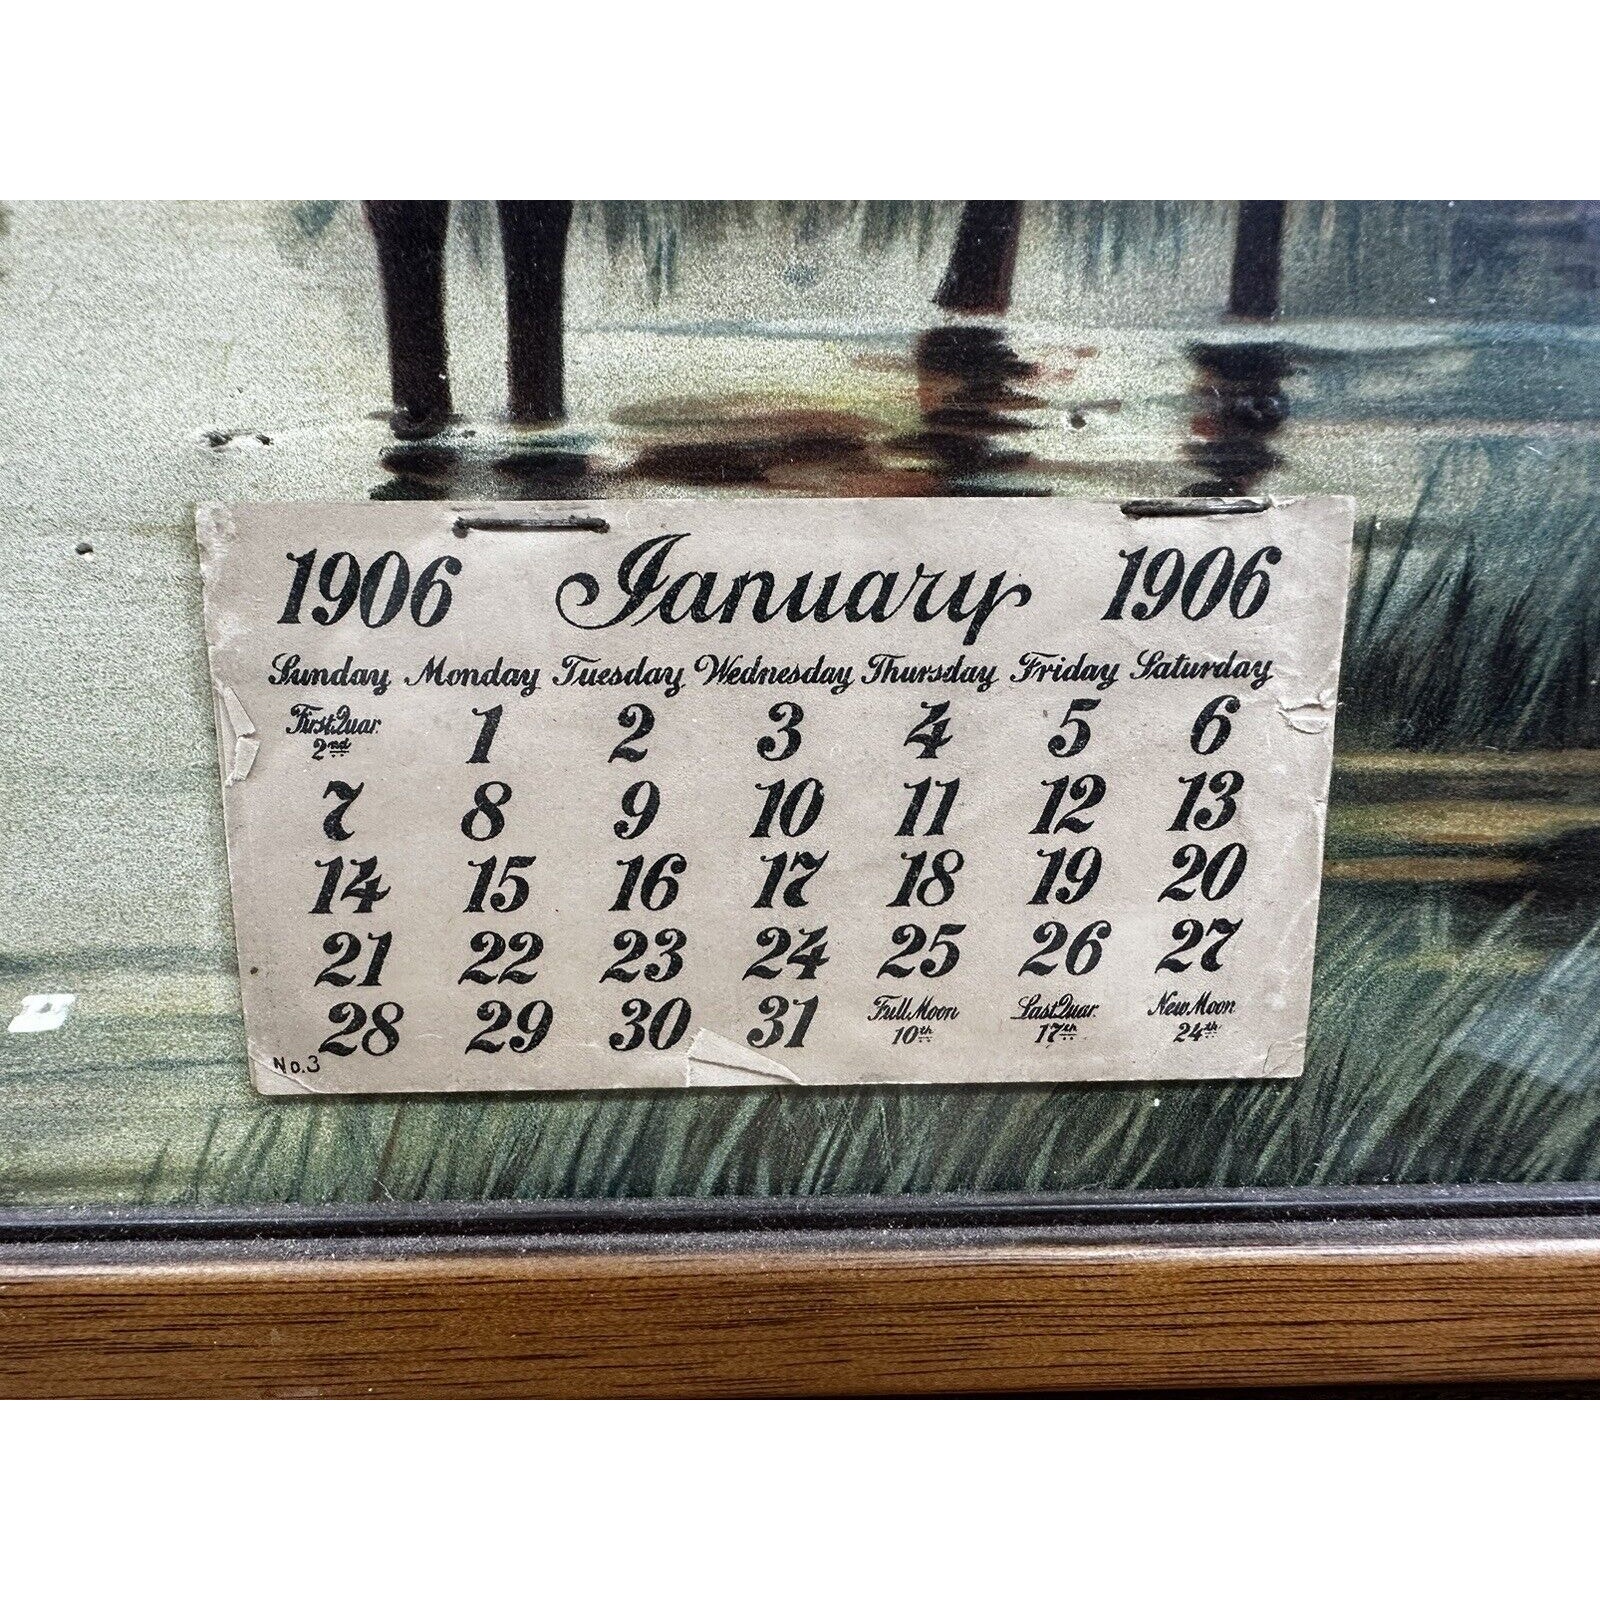 1906 January 1906
Sunday Monday Tuesday Wednesday Thursday Friday Saturday
First Quar. 2nd 1 2 3 4 5 6
7 8 9 10 11 12 13
14 15 16 17 18 19 20
21 22 23 24 25 26 27
28 29 30 31 Full Moon 10th Last Quar. 17th New Moon 24th
No.3